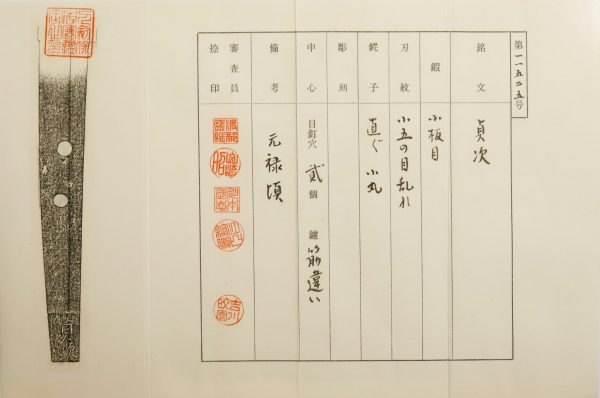 第一一五二五号
銘文 貞次
鍛 小板目
刃紋 小五の目乱れ
鋩子 直ぐ 小丸
彫刻
中心 目釘穴 貳個 鑢 筋違い
備考 元禄頃
審査員捺印